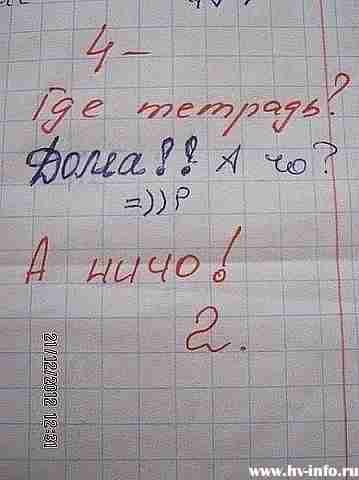 4-
Где тетрадь?
Дома!! А чо?
=))P
А ничо!
2.
21/12/2012 12:31
www.hv-info.ru